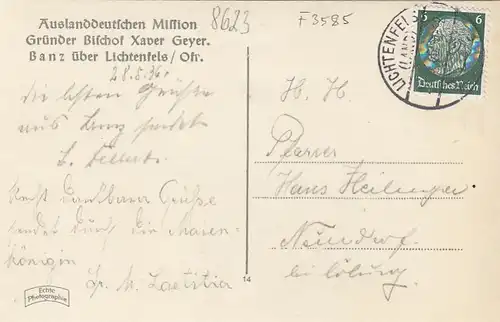 Auslanddeutschen Mission
Gründer Bischof Xaver Geyer.
Banz über Lichtenfels / Ofr.
8623
F3585
28.8.36.
die besten Grüße
aus Banz sendet
Recht dankbare Grüße
sendet durch die Maien-
königin
Sr. M. Laetitia
H. H.
Pfarrer
Hans Heilinger
Neundorf
bei Coburg.
LICHTENFELS
(LAND)
6 6
Deutsches Reich
14
Echte
Photographie